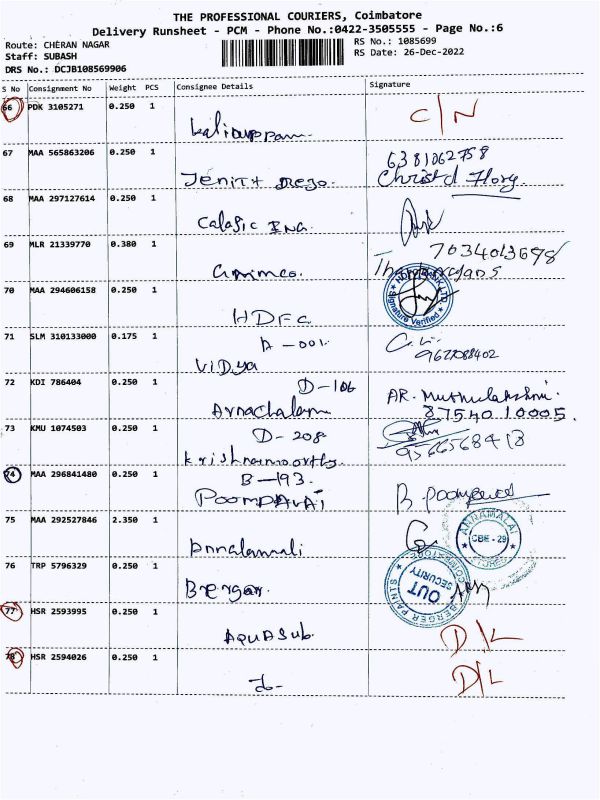 THE PROFESSIONAL COURIERS, Coimbatore
Delivery Runsheet - PCM - Phone No.:0422-3505555 - Page No.:6
Route: CHERAN NAGAR RS No.: 1085699
Staff: SUBASH RS Date: 26-Dec-2022
DRS No.: DCJB108569906
S No Consignment No Weight PCS Consignee Details Signature
66 PDK 3105271 0.250 1 C/N
67 MAA 565863206 0.250 1 6381062758
Jenith Christ d Flory
68 MAA 297127614 0.250 1
69 MLR 21339770 0.380 1 7034013698
70 MAA 294606158 0.250 1
HDFC Signature Verified
71 SLM 310133000 0.175 1 A-001
Vidya 9627088402
72 KDI 786404 0.250 1 D-106 AR. Muthulakshmi.
Arnachalam 87540 10005.
73 KMU 1074503 0.250 1 D-208 9566568418
Krishnamoorthy.
74 MAA 296841480 0.250 1 B-193.
POOMPAVAI
75 MAA 292527846 2.350 1 ANNAMALAI CBE - 29
Annalamali
76 TRP 5796329 0.250 1 BERGER PAINTS COIMBATORE OUT SECURITY
Berger.
77 HSR 2593995 0.250 1 D/L
AQUASUB.
78 HSR 2594026 0.250 1 D/L